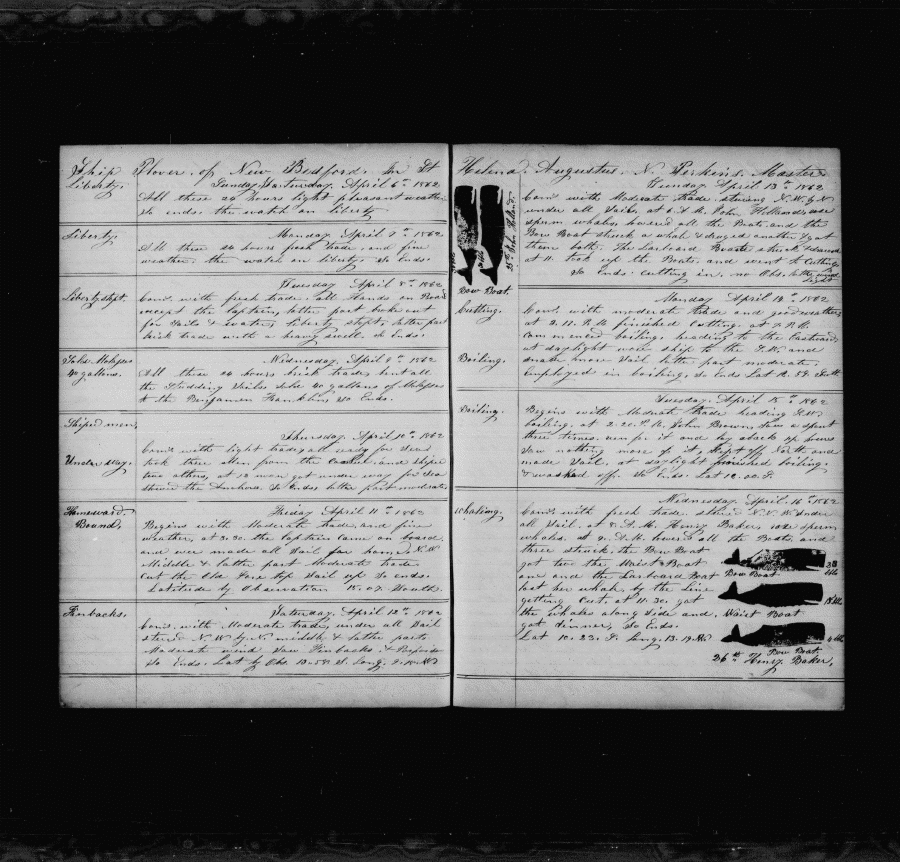 Ship Plover of New Bedford. In St
Liberty.
Sunday Saturday. April 6th 1862
All these 24 hours light pleasant weather
So ends. the watch on liberty
Liberty. Monday April 7th 1862
All these 24 hours fresh trade, and fine
weather. the watch on liberty. So Ends.
Tuesday April 8th 1862
Liberty stopt. Com. with fresh trade. all Hands on Board
except the Captain, latter part broke out
for Sails & water, liberty stopt, latter part
brick trade with a heavy swell. So Ends.
Wednesday April 9th 1862
40 gallons. All these 24 hours brick trade, bent all
the Studding Sails 40 gallons of
to the Benjamin Franklin, So Ends.
Shiped men,
Thursday. April 10th 1862
Com. with light trade, all ready for Sea
Under way. took three Men from the and shiped
two others, at 12 noon got under way for Sea
the Anchors. So Ends latter part moderate
Homeward Friday April 11th 1862
Bound, Begins with Moderate trade, and fine
weather, at 3.30. the Captain came on board
and we made all Sail for home, N.W.
Middle & latter part Moderate trade
the Old Fore top Sail up So ends.
Latitude by Observation 15.07 South
Finbacks. Saturday. April 12th 1862
Com. with Moderate trade, under all Sail
N.W. by N. middle & latter part
Moderate wind Saw Finbacks. &
So Ends. Lat by Obs. 13.58 S. Long.
Helena. Augustus. N. Perkins. Master
April 13th 1862
Com. with Moderate trade. stering N.W. by N
under all Sails. at 6 A.M. John Holland, saw
sperm whales, lowered all the Boats. and the
Bow Boat struck a whale & another & got
them both. The Larboard Boat struck &
at 11. took up the Boats. and went to Cutting
So ends. cutting in. no Obs. latter wind
light
25th John Holand.
Bow Boat.
Monday April 14th 1862
Cutting. Com. with moderate trade and good weather,
at P.M. finished Cutting. at 7 P.M.
commenced boiling. heading to the Eastward
at daylight wore ship to the and
Boiling. made more Sail latter part moderate
Employed in boiling. So Ends Lat 12.59. South
Tuesday. April 15th 1862
Boiling. Begins with Moderate trade heading
boiling. at 2.20. P.M. John Brown, saw a spout
three times. run for it and lay aback up hours
Saw nothing more of it, kept off North and
made Sail. at daylight finished boiling.
& washed off. So Ends. Lat 12.02 S.
Wednesday, April. 16th 1862
Whaling. Com. with fresh trade. stered N.N.W. under
all Sail. at 8 A.M. Henry Baker, saw sperm
whales. at 9. A.M. lowered all the Boats. and
three struck. the Bow Boat
got two the Waist Boat
one and the Larboard Boat
lost her whale by the line
getting Cut, at 11.30, got
the whales along Side and,
got dinner, So Ends.
Lat 10.23. S. Long. 13.19 W.
Bow Boat
Waist Boat
Bow Boat.
26th Henry Baker,